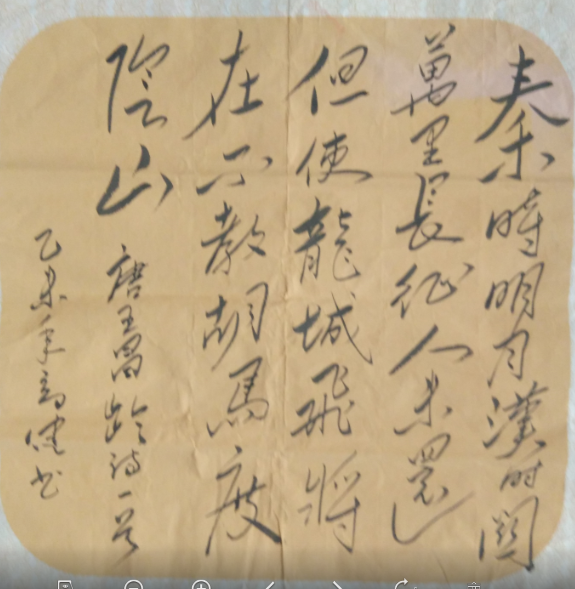 秦時明月漢时關
萬里長征人未還
但使龍城飛將
在不教胡馬度
陰山
唐王昌龄诗一首
乙未年 健书